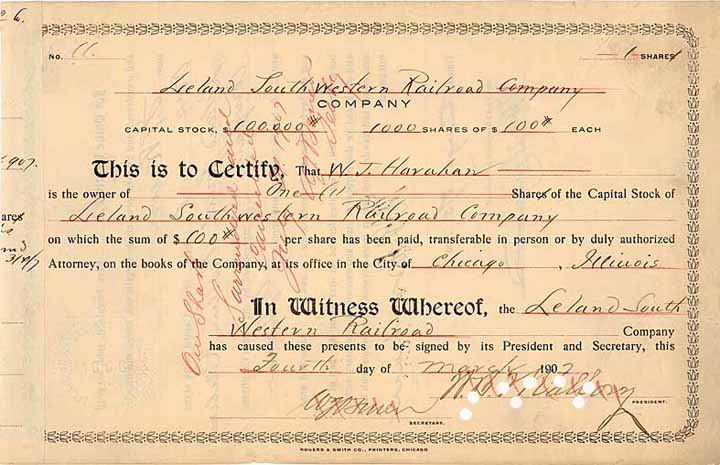 No. 11. 1 SHARES
Leland South Western Railroad Company
COMPANY
CAPITAL STOCK, $ 100.000 # 1000 SHARES OF $ 100 # EACH
This is to Certify, That W. J. Harahan
is the owner of One (1) Shares of the Capital Stock of
Leland Southwestern Railroad Company
on which the sum of $ 100 # per share has been paid, transferable in person or by duly authorized
Attorney, on the books of the Company, at its office in the City of Chicago, Illinois
In Witness Whereof, the Leland South
Western Railroad Company
has caused these presents to be signed by its President and Secretary, this
Fourth day of March 1907
PRESIDENT.
SECRETARY.
ROGERS & SMITH CO., PRINTERS, CHICAGO
One Share